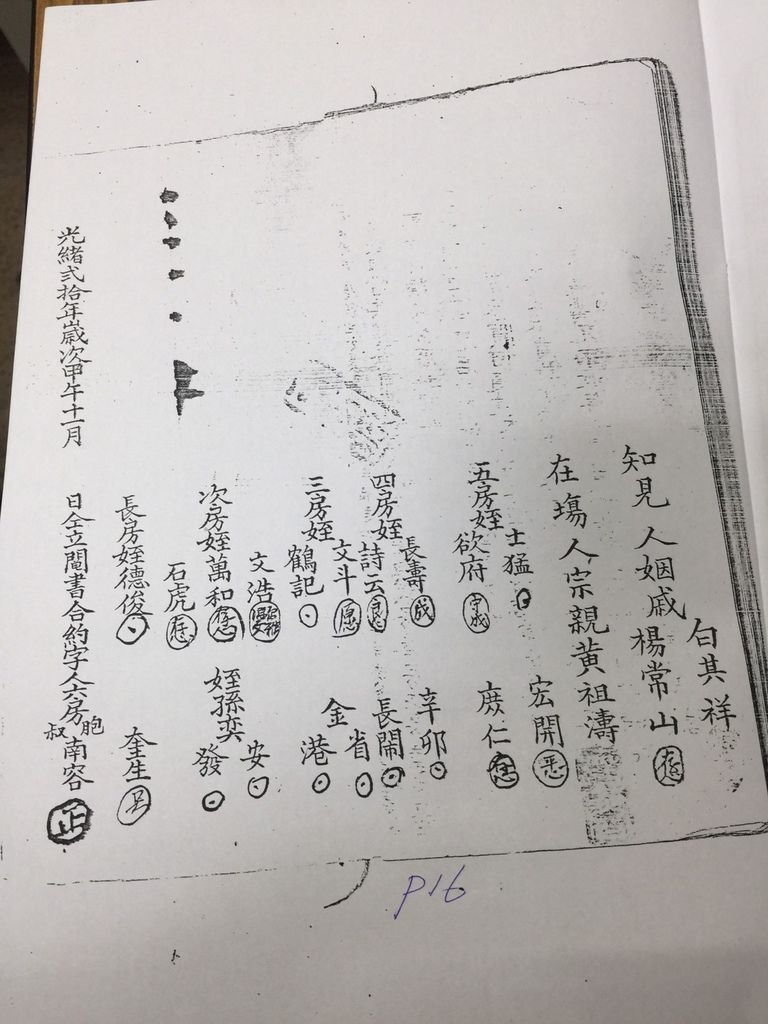 白其祥
知見人姻戚楊常山
在塲人宗親黄祖濤
宏開
士猛
五房姪欲府
赓仁
長壽
辛卯
四房姪詩云
長開
文斗
省
三房姪鶴記
金港
文浩
安
次房姪萬和
姪孫奕發
石虎
長房姪德俊
奎生
日仝立鬮書合約字人六房胞叔南容 正
光緒弍拾年歲次甲午十一月
P16